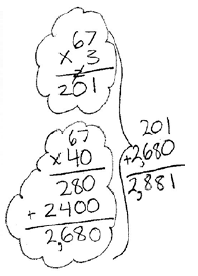 67
x 3
2
201
67
x 40
280
+ 2400
2,680
201
+2,680
2,881